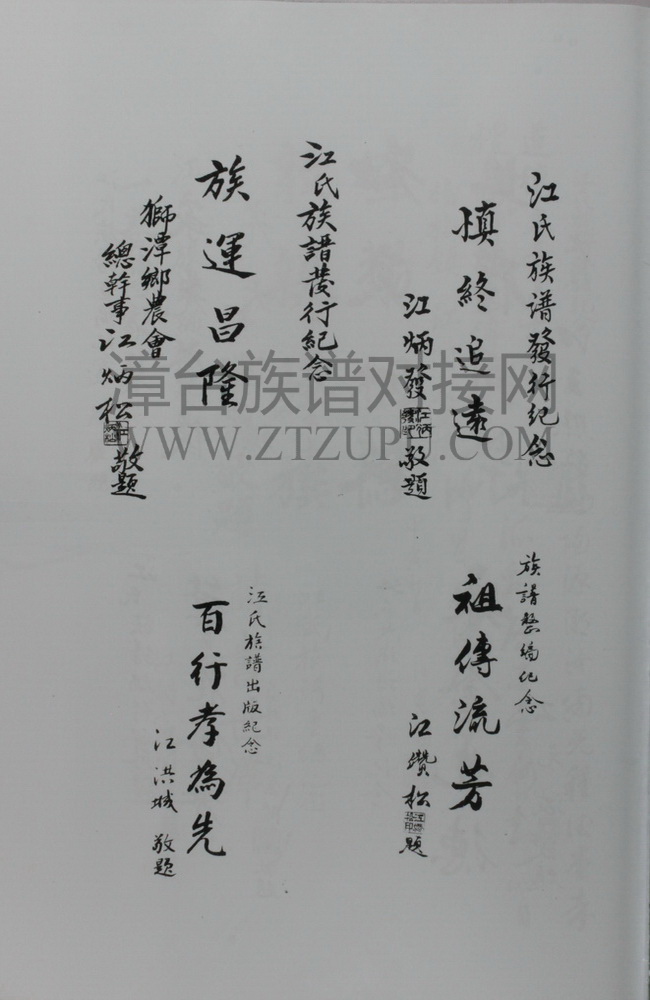 江氏族谱發行紀念
慎終追遠
江炳發
敬題
江氏族譜發行紀念
族運昌隆
獅潭鄉農會
總幹事江炳松
敬題
族譜整編纪念
祖傳流芳
江讚松
題
江氏族譜出版紀念
百行孝為先
江洪城 敬題
漳台族谱对接网
WWW.ZTZUPU.COM